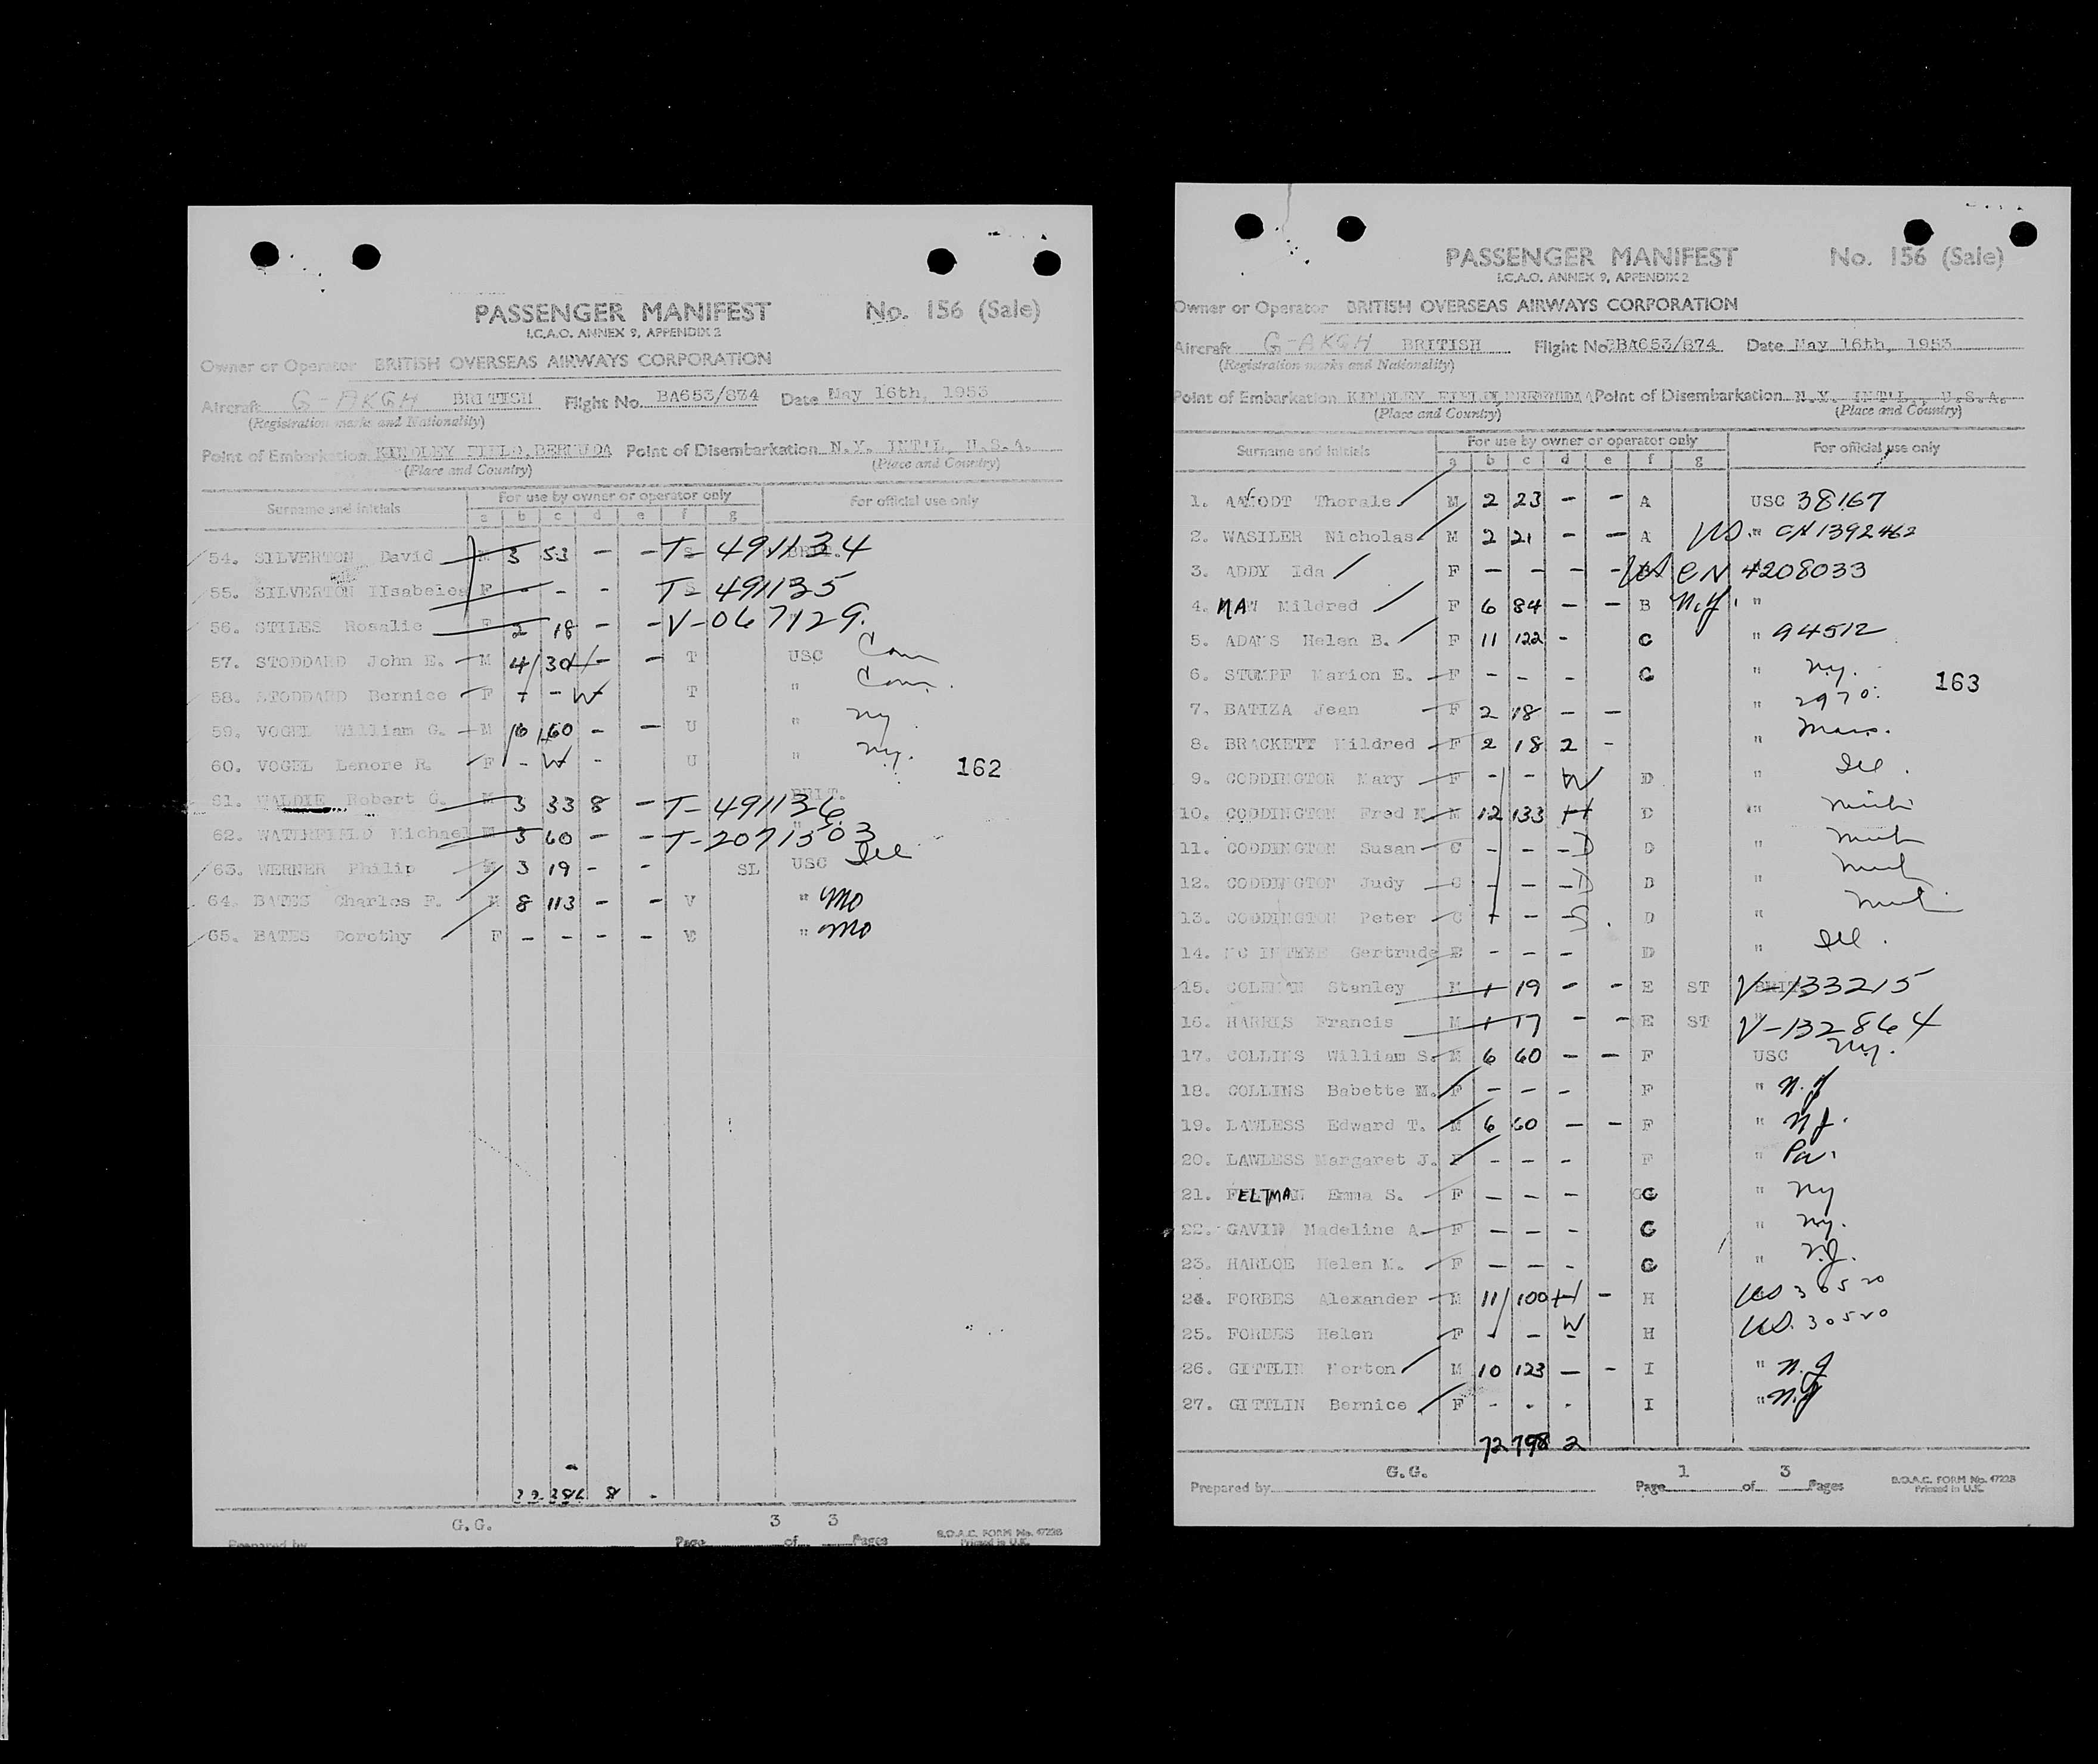 PASSENGER MANIFEST No. 156 (Sale)
I.C.A.O. ANNEX 9, APPENDIX 2
Owner or Operator BRITISH OVERSEAS AIRWAYS CORPORATION
Aircraft G-AKGH BRITISH Flight No. BA653/874 Date May 16th, 1953
(Registration marks and Nationality)
Point of Embarkation KINDLEY FIELD, BERMUDA Point of Disembarkation N.Y. INT'L, U.S.A.
(Place and Country) (Place and Country)
Surname and Initials For use by owner or operator only For official use only
a b c d e f g
54. SILVERTON David M 3 53 - - T-491134
55. SILVERTON IIsabelos F - - - T-491135
56. STILES Rosalie F 2 18 - - V-067129.
57. STODDARD John E. M 4 30 - - T USC Conn
58. STODDARD Bernice F - - W T " Conn.
59. VOGEL William G. M 60 - - U " ny
60. VOGEL Lenore R. F - W - U " ny.
162
61. WALDIE Robert G. M 3 33 8 - T-491136 BRIT.
62. WATERFIELD Michael M 3 60 - - T-2071503
63. WERNER Philip M 3 19 - - SL USC Ill
64. BATES Charles F. M 8 113 - - V " Mo
65. BATES Dorothy F - - - - " Mo
8 -
G.G. 3 3
Prepared by Page of Pages B.O.A.C. FORM No. 4722B
Printed in U.K.
PASSENGER MANIFEST No. 156 (Sale)
I.C.A.O. ANNEX 9, APPENDIX 2
Owner or Operator BRITISH OVERSEAS AIRWAYS CORPORATION
Aircraft G-AKGH BRITISH Flight No. BA653/874 Date May 16th, 1953
(Registration marks and Nationality)
Point of Embarkation KINDLEY FIELD, BERMUDA Point of Disembarkation N.Y. INT'L., U.S.A.
(Place and Country) (Place and Country)
Surname and Initials For use by owner or operator only For official use only
a b c d e f g
1. Thorale M 2 23 - - A USC 38167
2. WASILER Nicholas M 2 21 - - A US " CN 1392462
3. ADDY Ida F - - - - US CN 4208033
4. Mildred F 6 84 - - B N.Y. "
5. ADAMS Helen B. F 11 122 - C " 94512
6. STUMPF Marion E. F - - - G " ny.
163
7. BATIZA Jean F 2 18 - - " 2970.
8. BRACKETT Mildred F 2 18 2 - " Mass.
9. CODDINGTON Mary F - - W D " Ill.
10. CODDINGTON Fred M M 12 133 H D " Mich
11. CODDINGTON Susan C - - - D D " Mich
12. CODDINGTON Judy C - - - D D " Mich
13. CODDINGTON Peter C - - S. D " Mich
14. MC INTYRE Gertrude F - - - D " Ill.
15. COLEMAN Stanley M 1 19 - - E ST V-133215
16. HARRIS Francis M 1 17 - - E ST V-132864
17. COLLINS William S. M 6 60 - - F USC ny.
18. COLLINS Babette M. F - - - F " N.Y
19. LAWLESS Edward T. M 6 60 - - F " N.J.
20. LAWLESS Margaret J. F - - - F " Pa.
21. FELTMAN Emma S. F - - - G " ny
22. GAVIN Madeline A F - - - G " ny.
23. HARLOE Helen M. F - - - G " N.J.
24. FORBES Alexander M 11 100 H - H US 30520
25. FORBES Helen F - - W H US. 30520
26. GITTLIN Morton M 10 123 - - I " N.J
27. GITTLIN Bernice F - - - I " N.J
72 798 2
G.G. 1 3
Prepared by Page of Pages B.O.A.C. FORM No. 4722B
Printed in U.K.